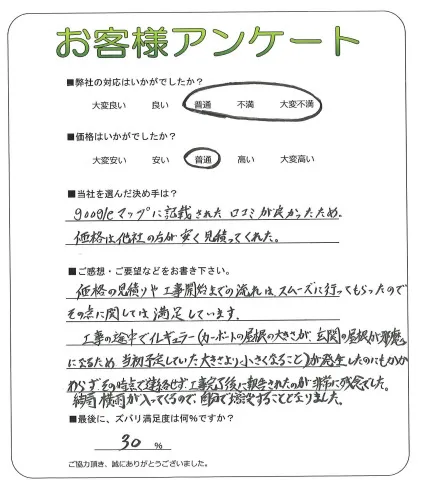 お客様アンケート
■弊社の対応はいかがでしたか？
大変良い 良い 普通 不満 大変不満
■価格はいかがでしたか？
大変安い 安い 普通 高い 大変高い
■当社を選んだ決め手は？
googleマップに記載された口コミが良かったため.
価格は他社の方が安く見積ってくれた。
■ご感想・ご要望などをお書き下さい。
価格の見積りや工事開始までの流れは、スムーズに行ってもらったので
その点に関しては満足しています.
工事の途中でイレギュラー(カーポートの屋根の大きさが、玄関の屋根が邪魔
になるため、当初予定していた大きさより、小さくなること)が発生したのにもかか
わらずその時点で連絡せず工事完了後に報告されたのが非常に残念でした。
結局横雨が入ってくるので、することとなりました。
■最後に、ズバリ満足度は何％ですか？
30 ％
ご協力頂き、誠にありがとうございました。